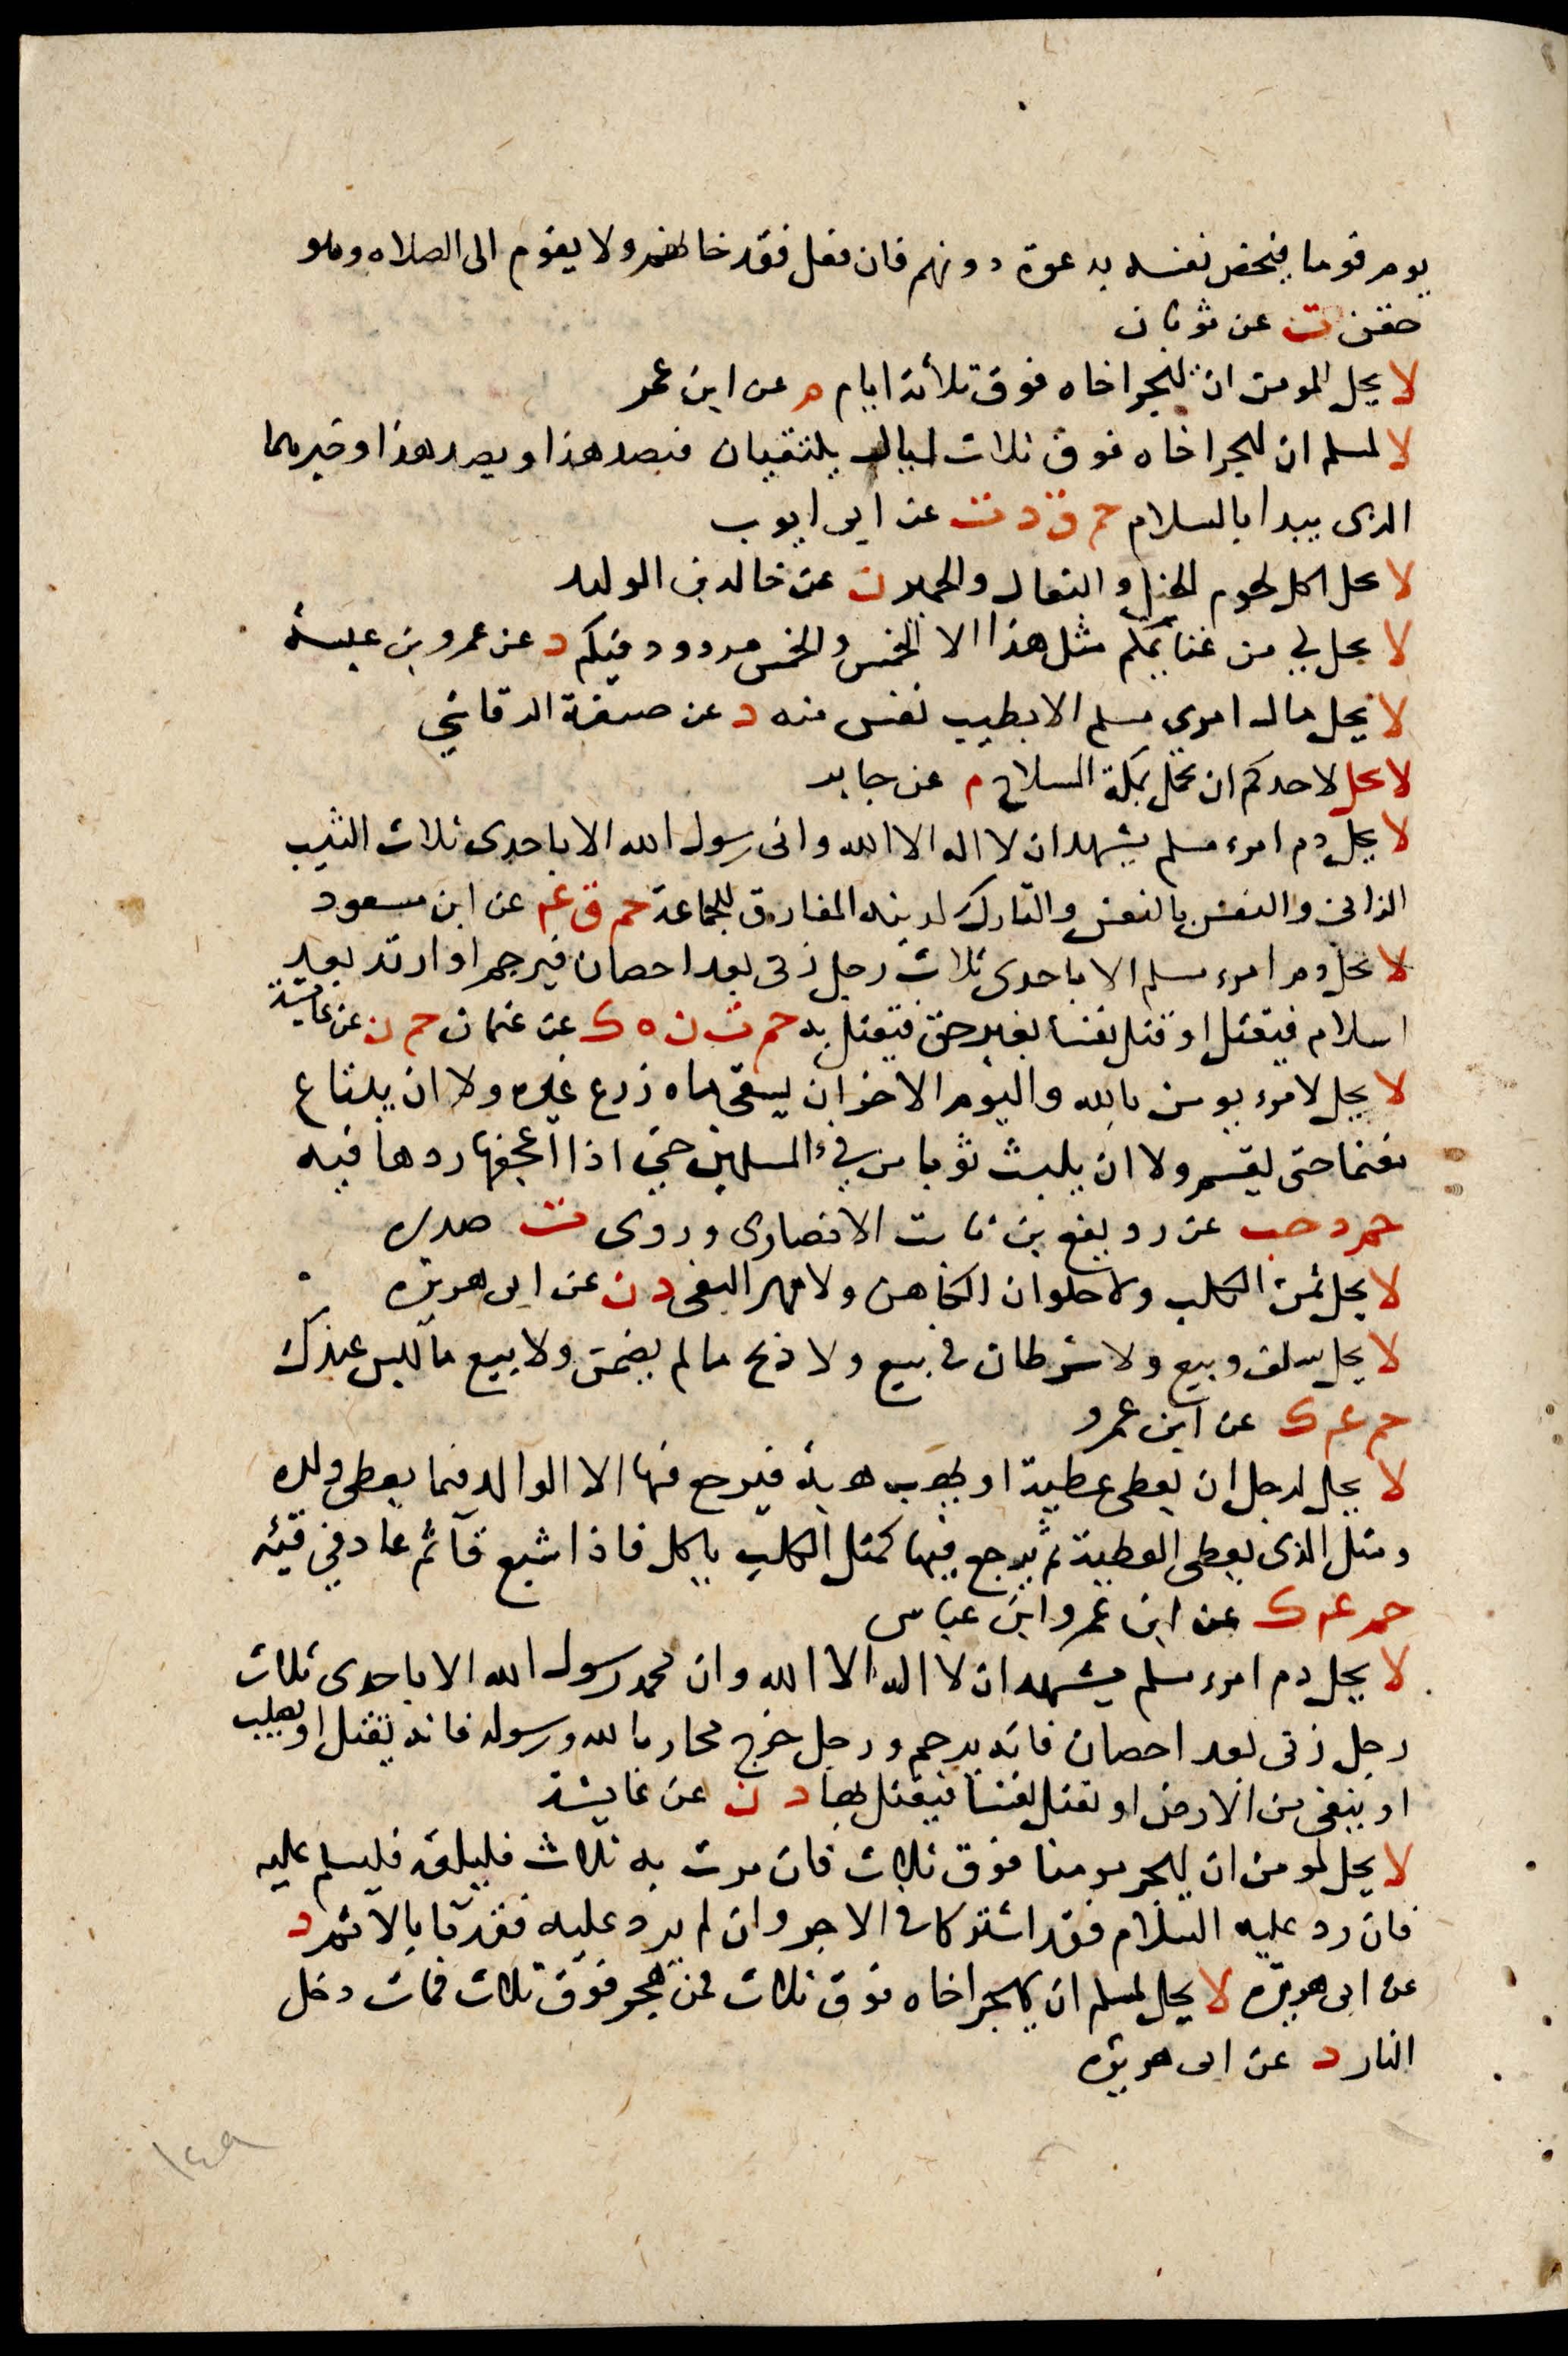 يوم قوما فيخص نفسه بدعوة دونهم فان فعل فقد خانهم ولا يقوم الى الصلاه وهو
حقن ت عن ثوبان
لا يحل لمومن ان يهجر اخاه فوق ثلاثة ايام م عن ابن عمر
لا لمسلم ان يهجر اخاه فوق ثلاث ليال يلتقيان فيصد هذا ويصد هذا وخيرهما
الذى يبدا بالسلام حم ق د ت عن ابى ايوب
لا يحل اكل لحوم الخيل و البغال والحمير ن عن خالد بن الوليد
لا يحل لي من غنايمكم مثل هذا الا الخمس والخمس مردود فيكم د عن عمرو بن عبسة
لا يحل مال امرى مسلم الا بطيب نفس منه د عن حنيفة الرقاشي
لا يحل لاحدكم ان يحمل بمكة السلاح م عن جابر
لا يحل دم امرء مسلم يشهد ان لا اله الا الله وانى رسول الله الا باحدى ثلاث الثيب
الزانى والنفس بالنفس والتارك لدينه المفارق للجماعة حم ق عه عن ابن مسعود
لا يحل دم امرء مسلم الا باحدى ثلاث رجل زنى بعد احصان فيرجم او ارتد بعد
اسلام فيقتل او قتل نفسا بغير حق فيقتل به حم ت ن ه ك عن عثمان حم ن عن عايشة
لا يحل لامرء يومن بالله واليوم الاخر ان يسقى ماه زرع غيره ولا ان يبتاع
مغنما حتى يقسم ولا ان يلبث ثوبا من فيء المسلمين حتي اذا اعجفها ردها فيه
حم د حب عن رويفع بن ثابت الانصارى وروى ت صدره
لا يحل ثمن الكلب ولا حلوان الكاهن ولا مهر البغى د ن عن ابى هريره
لا يحل سلف وبيع ولا شرطان في بيع ولا ربح ما لم يضمن ولا بيع ما ليس عندك
حم عه ك عن ابن عمرو
لا يحل لرجل ان يعطى عطية او يهب هبة فيرجع فيها الا الوالد فيما يعطى ولده
ومثل الذى يعطى العطية ثم يرجع فيها كمثل الكلب ياكل فاذا شبع قآ ثم عاد في قيئه
حم عه ك عن ابن عمر وابن عباس
لا يحل دم امرء مسلم يشهد ان لا اله الا الله وان محمد رسول الله الا باحدى ثلاث
رجل زنى بعد احصان فانه يرجم ورجل خرج محاربا لله ورسوله فانه يقتل او يصلب
او ينفى من الارض او يقتل نفسا فيقتل بها د ن عن عايشة
لا يحل لمومن ان يهجر مومنا فوق ثلاث فان مرت به ثلاث فليلقه فليسلم عليه
فان رد عليه السلام فقد اشتركا في الاجر وان لم يرد عليه فقد بآ بالاثم د
عن ابى هريره لا يحل لمسلم ان يهجر اخاه فوق ثلاث فمن هجر فوق ثلاث فمات دخل
النار د عن ابى هريره
١٤٩